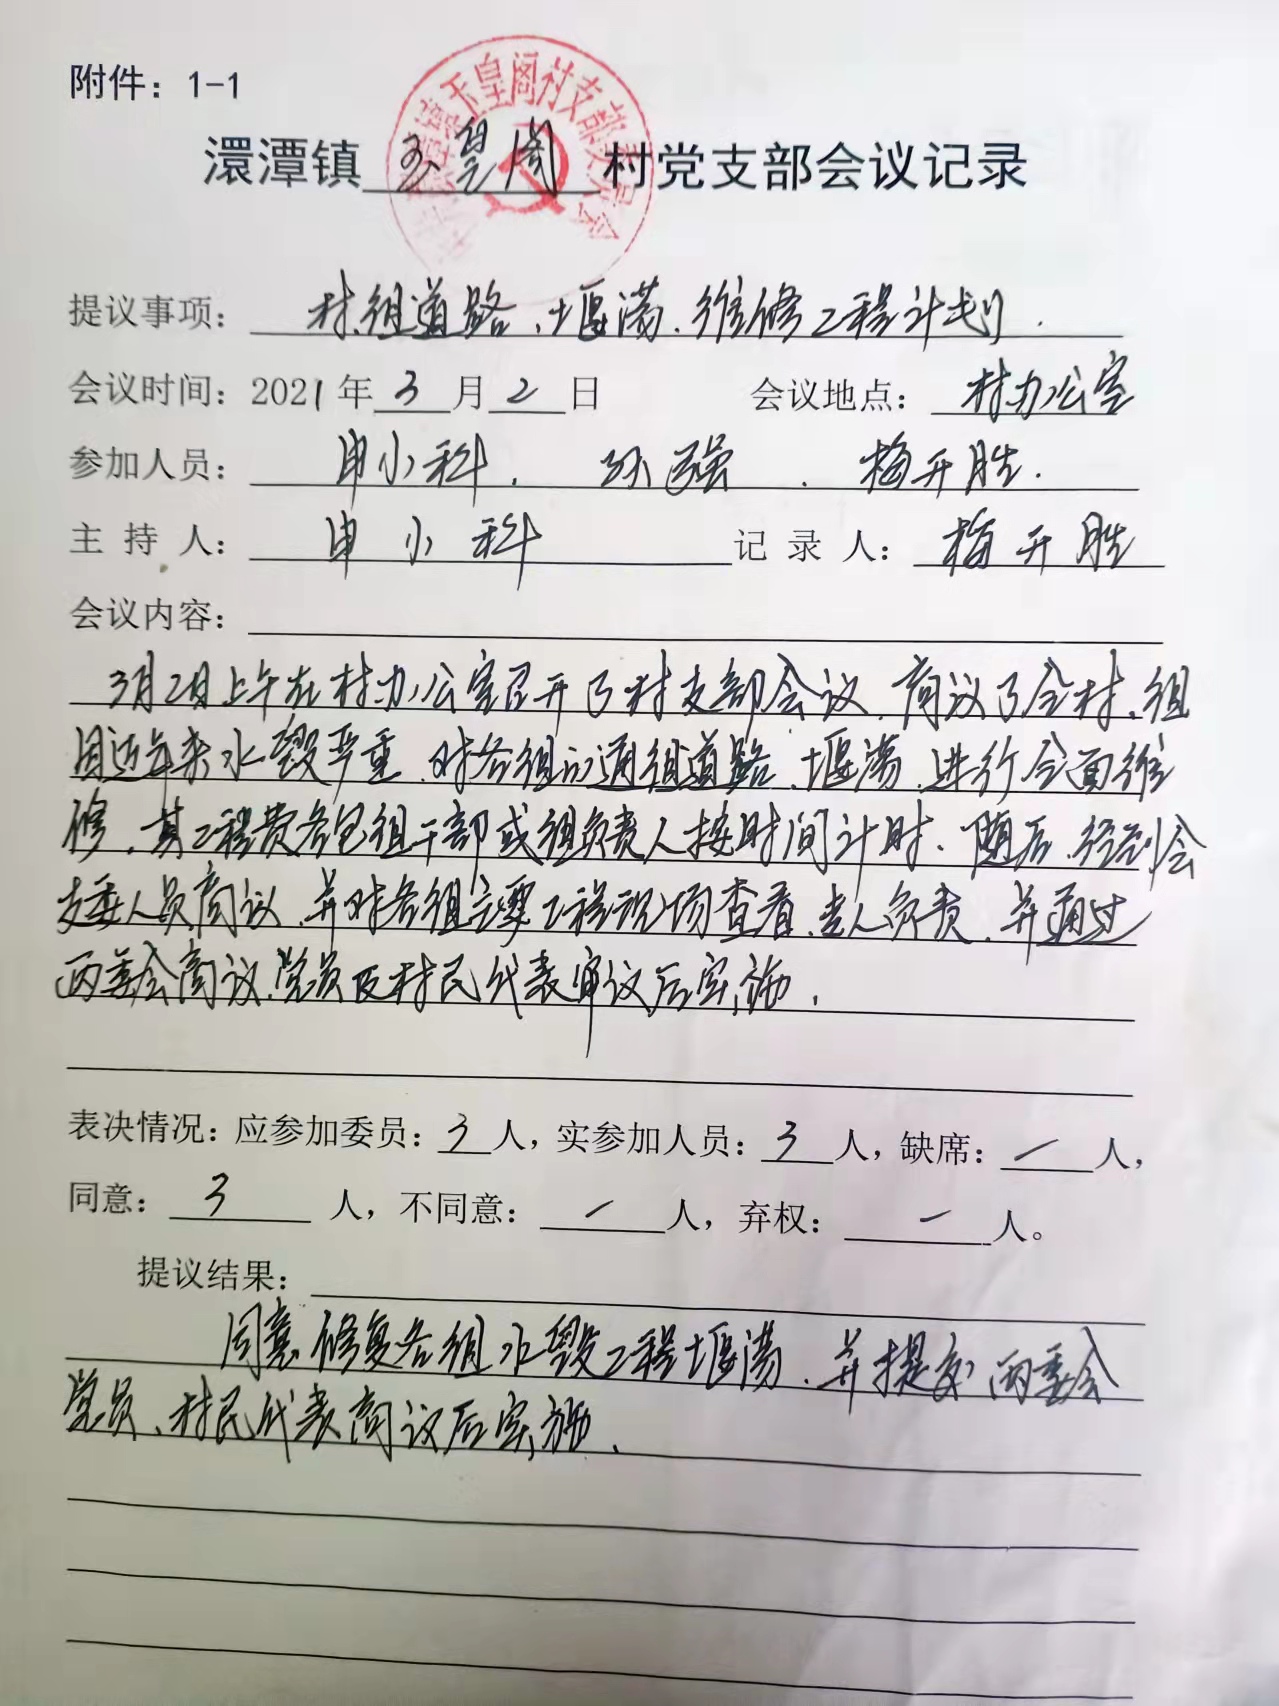 附件：1-1
玉皇阁村支部委员会
澴潭镇玉皇阁村党支部会议记录
提议事项：村、组道路、堰荡、维修工程计划.
会议时间：2021年3月2日 会议地点：村办公室
参加人员：申小科、孙强、梅开胜.
主 持 人：申小科 记 录 人：梅开胜
会议内容：
3月2日上午在村办公室召开了村支部会议，商议了全村、组
因近年来水毁严重，对各组的通组道路、堰荡，进行全面维
修，其工程费各包组干部或组负责人按时间计时、随后，经到会
支委人员商议，并对各组主要工程现场查看，专人负责，并通过
两委会商议，党员及村民代表审议后实施，
表决情况：应参加委员：3人，实参加人员：3人，缺席：/人，
同意：3人，不同意：/人，弃权：/人。
提议结果：
同意修复各组水毁工程堰荡，并提交两委会
党员、村民代表商议后实施、